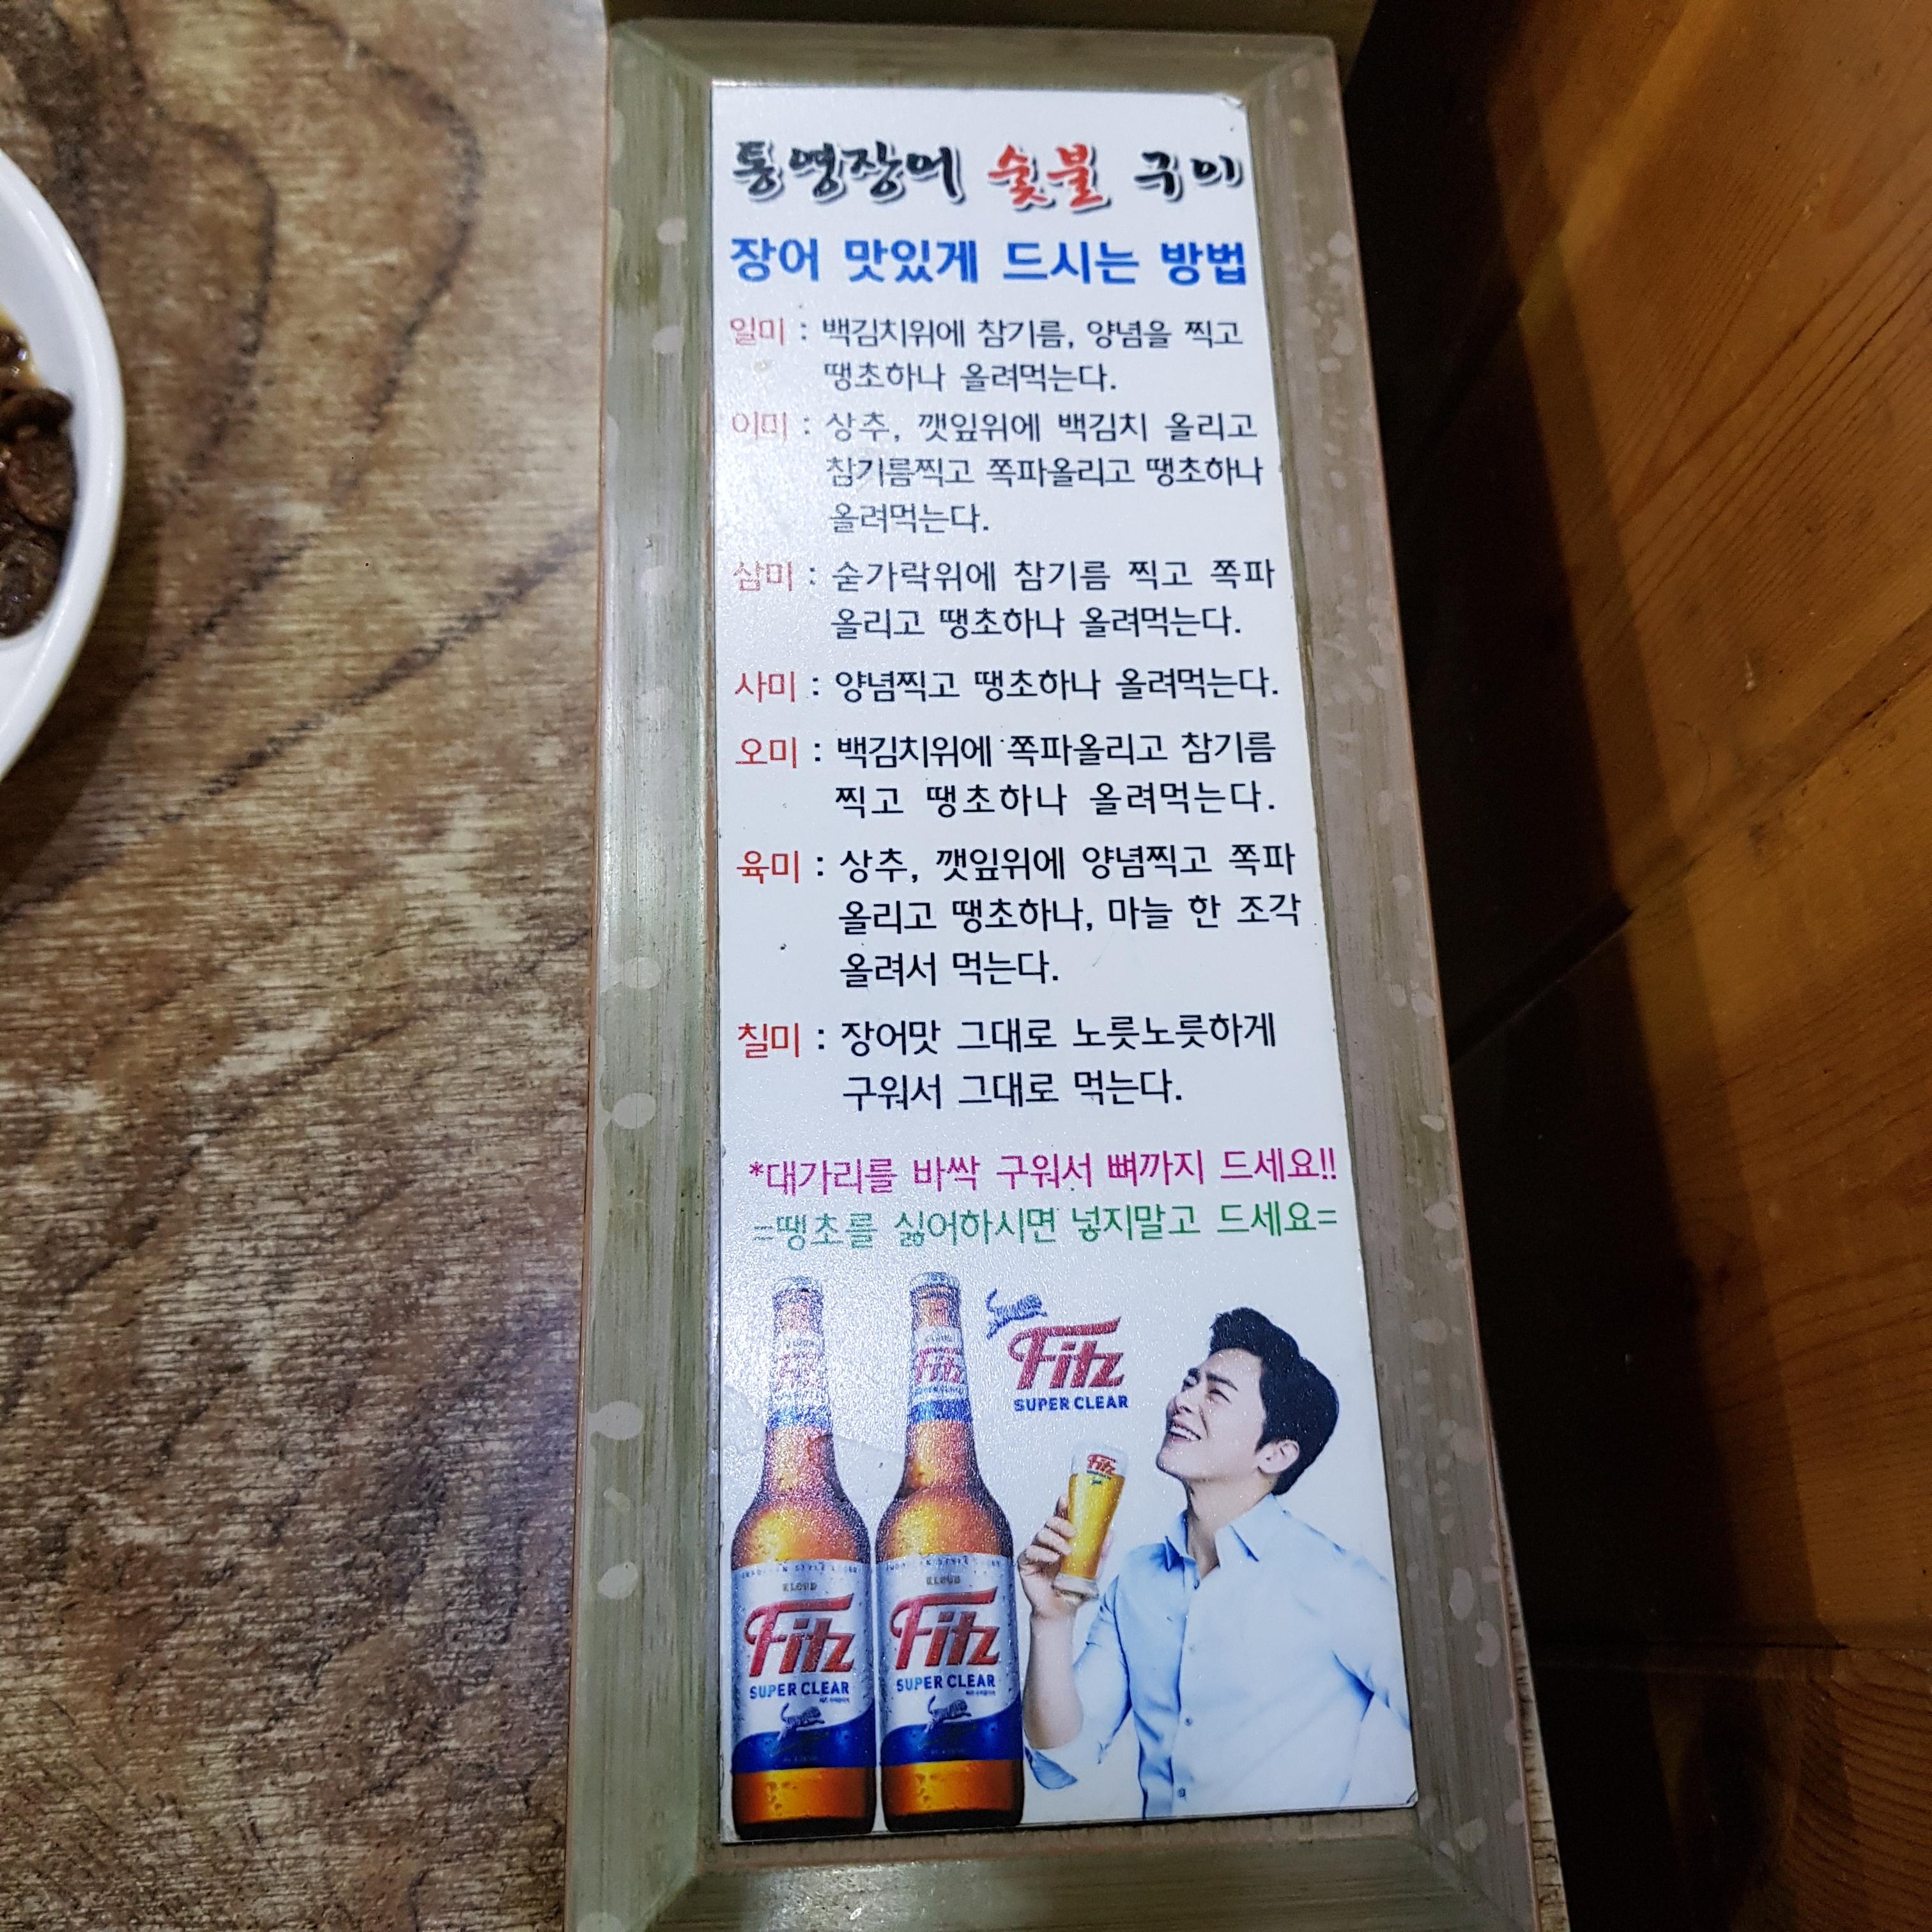 통영장어 숯불 구이
장어 맛있게 드시는 방법
일미 : 백김치위에 참기름, 양념을 찍고
땡초하나 올려먹는다.
이미 : 상추, 깻잎위에 백김치 올리고
참기름찍고 쪽파올리고 땡초하나
올려먹는다.
삼미 : 숟가락위에 참기름 찍고 쪽파
올리고 땡초하나 올려먹는다.
사미 : 양념찍고 땡초하나 올려먹는다.
오미 : 백김치위에 쪽파올리고 참기름
찍고 땡초하나 올려먹는다.
육미 : 상추, 깻잎위에 양념찍고 쪽파
올리고 땡초하나, 마늘 한 조각
올려서 먹는다.
칠미 : 장어맛 그대로 노릇노릇하게
구워서 그대로 먹는다.
*대가리를 바싹 구워서 뼈까지 드세요!!
=땡초를 싫어하시면 넣지말고 드세요=
Fitz
SUPER CLEAR
Fitz
Fitz
Fitz
KLOUD
Fitz
SUPER CLEAR
KLOUD
Fitz
SUPER CLEAR